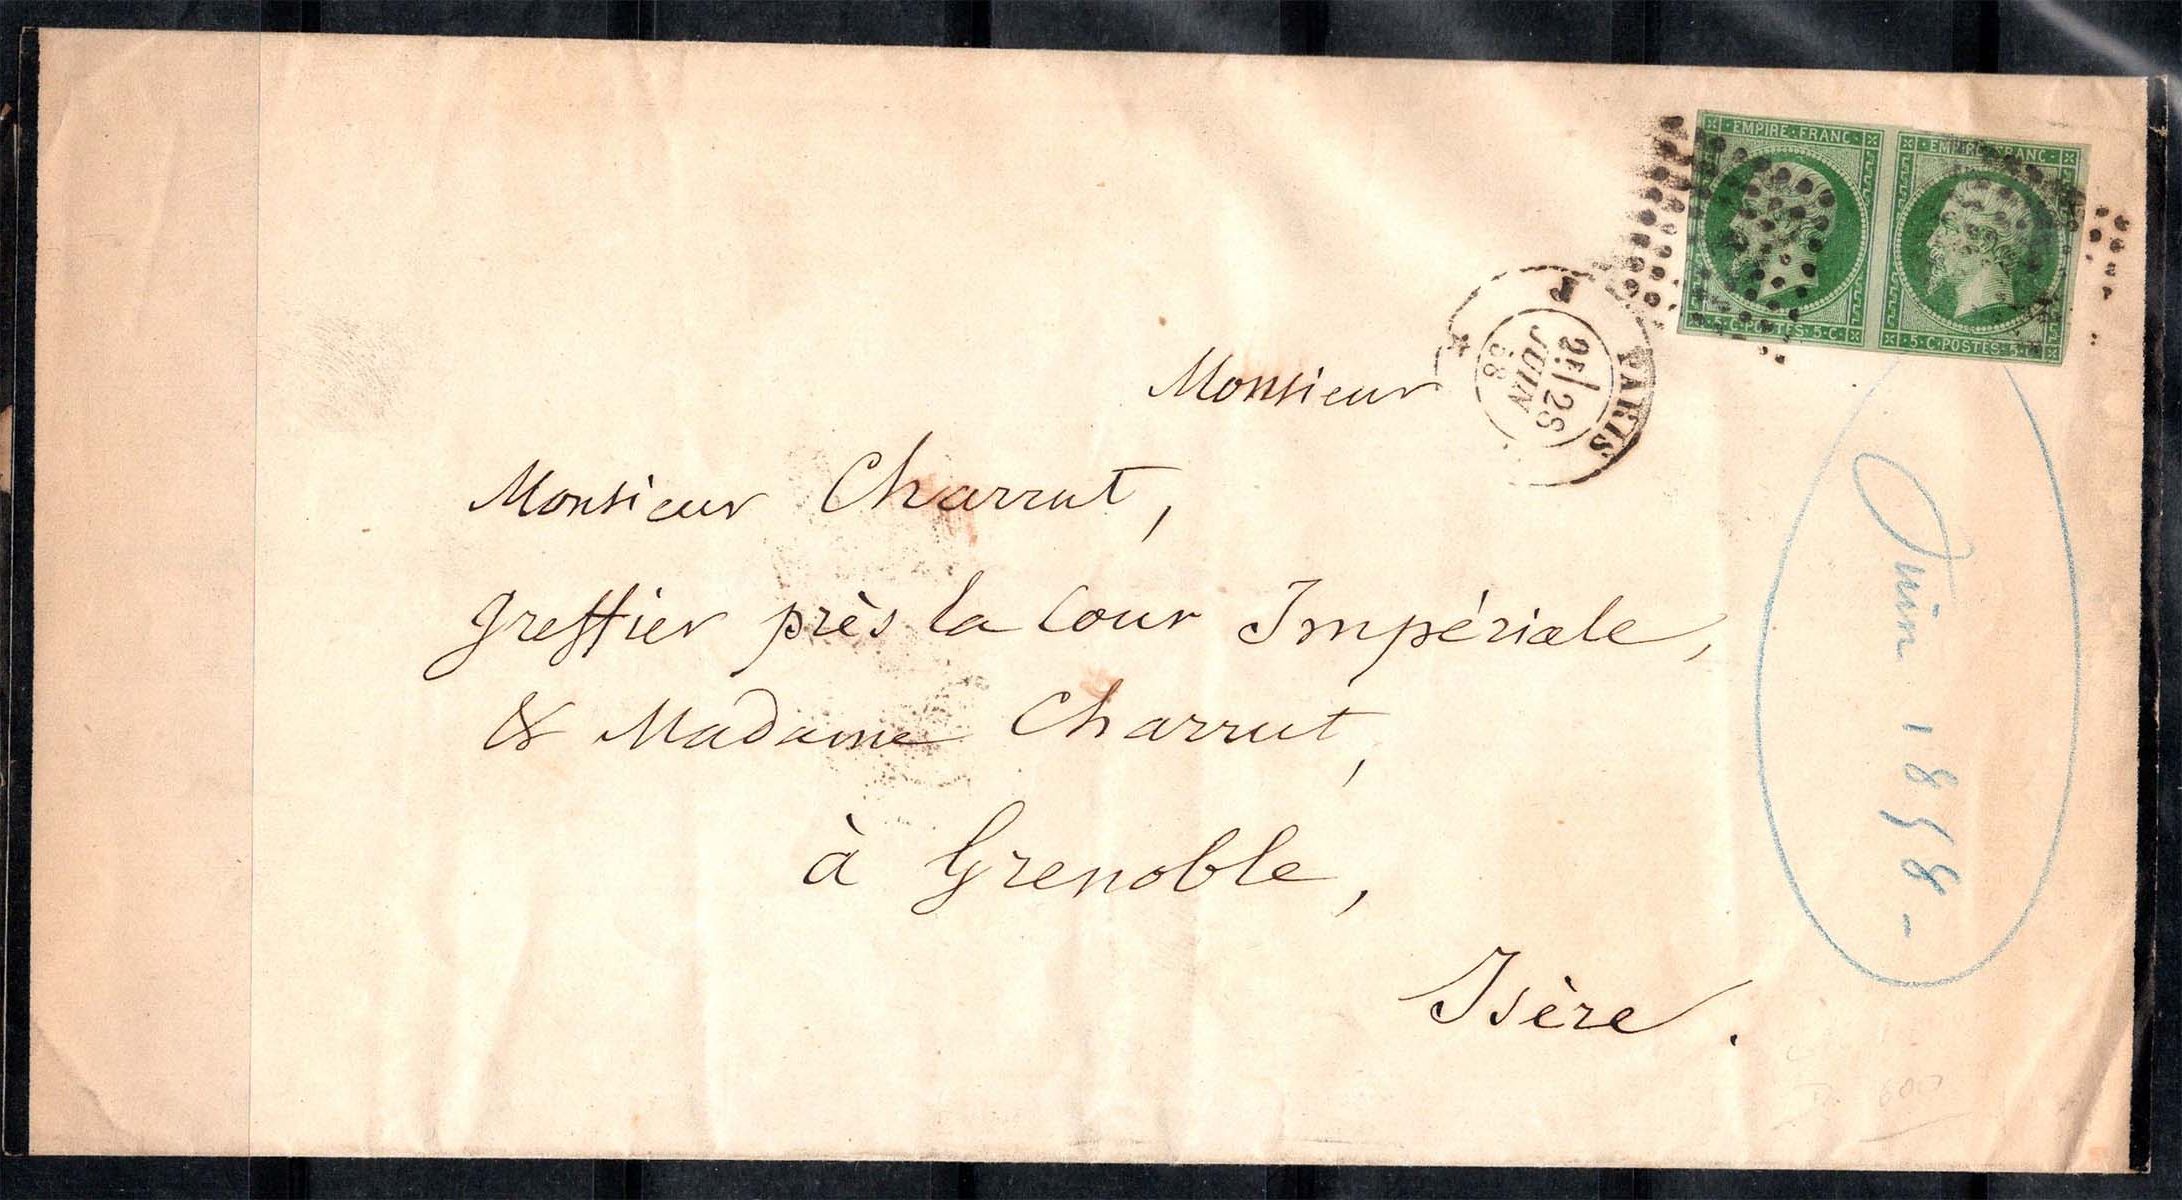 · EMPIRE · FRANC ·
· EMPIRE · FRANC ·
· 5 · C · POSTES · 5 · C ·
· 5 · C · POSTES · 5 · C ·
PARIS
2E 28
JUIN
58
Monsieur
Monsieur Charrut,
Greffier près la Cour Impériale,
& Madame Charrut,
à Grenoble,
Isère.
Juin 1858 -